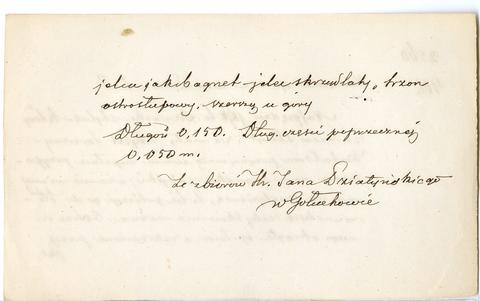 jelca jak bagnet – jelec skrzydlaty, trzon
ostrosłupowy, szerszy u góry
Długość 0,150. Dług. części poprzecznej
0,050 m.
Ze zbiorów Hr. Jana Działyńskiego
w Gołuchowie